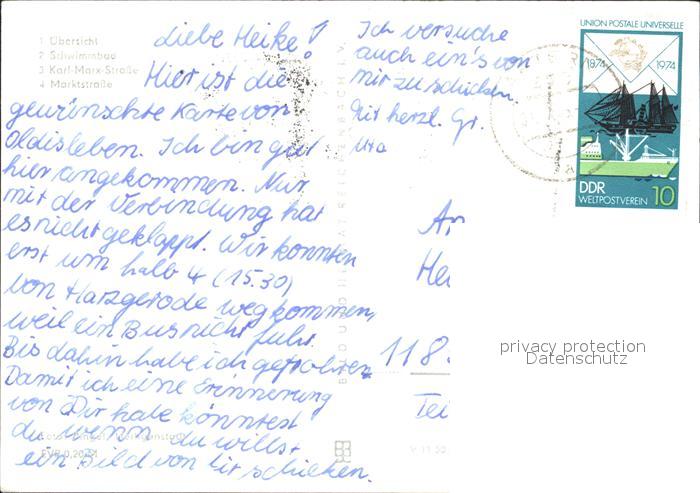 1 Übersicht
2 Schwimmbad
3 Karl-Marx-Straße
4 Marktstraße
Liebe Heike!
Hier ist die
gewünschte Karte von
Oldisleben. Ich bin gut
hier angekommen. Nur
mit der Verbindung hat
es nicht geklappt. Wir konnten
erst um halb 4 (15.30)
von Harzgerode wegkommen,
weil ein Bus nicht fuhr.
Bis dahin habe ich gefroren.
Damit ich eine Erinnerung
von Dir habe könntest
du wenn du willst
ein Bild von dir schicken.
Ich versuche
auch ein's von
mir zu schicken.
Mit herzl. Gr.
Uta
An
He
118
Tei
BILD UND HEIMAT REICHENBACH I. V.
EVP 0,20 M
V 11 50
UNION POSTALE UNIVERSELLE
1874 1974
DDR 10
WELTPOSTVEREIN
privacy protection
Datenschutz